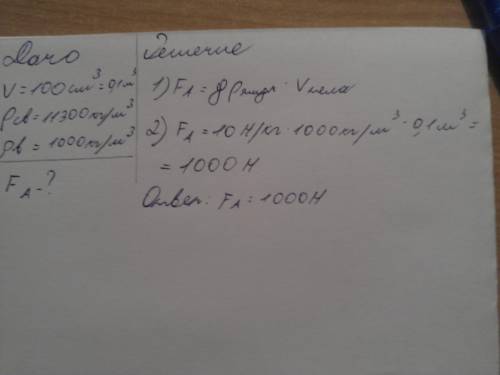 Дано
V = 100 см³ = 0,1 м³
ρсв = 11300 кг/м³
ρв = 1000 кг/м³
FА - ?
Решение
1) FА = gρжидк · Vтела
2) FА = 10 Н/кг · 1000 кг/м³ · 0,1 м³ =
= 1000 Н
Ответ: FА = 1000 Н